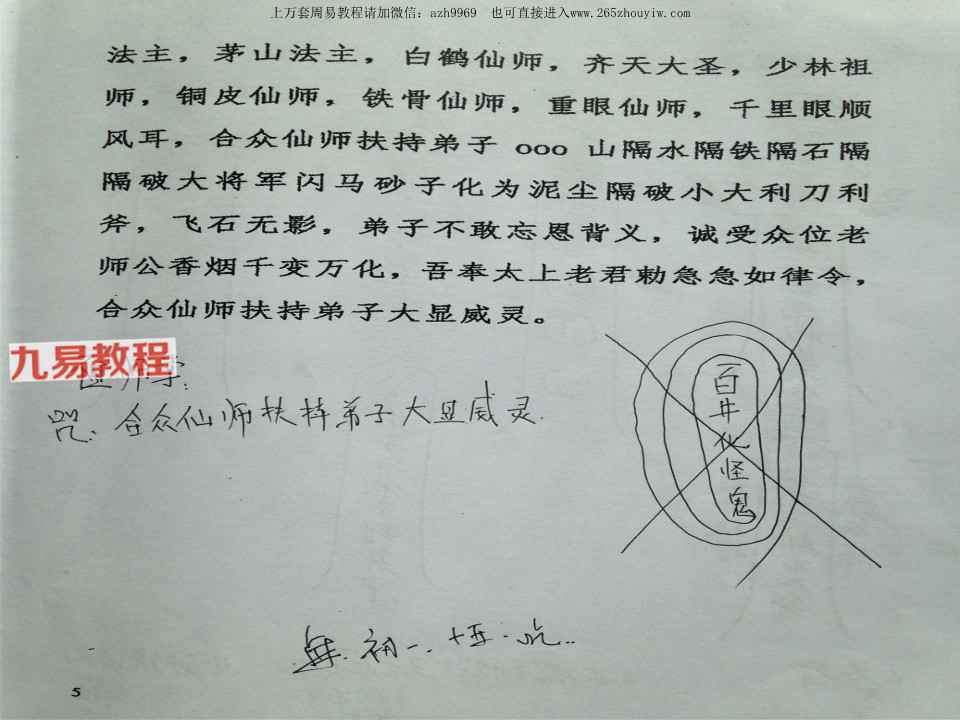 上万套周易教程请加微信：azh9969　也可直接进入www.265zhouyiw.com
法主，茅山法主，白鹤仙师，齐天大圣，少林祖
师，铜皮仙师，铁骨仙师，重眼仙师，千里眼顺
风耳，合众仙师扶持弟子 ooo 山隔水隔铁隔石隔
隔破大将军闪马砂子化为泥尘隔破小大利刀利
斧，飞石无影，弟子不敢忘恩背义，诚受众位老
师公香烟千变万化，吾奉太上老君勅急急如律令，
合众仙师扶持弟子大显威灵。
九易教程
字：
咒：合众仙师扶持弟子大显威灵.
百井化怪鬼
初一、十五、吃..
5